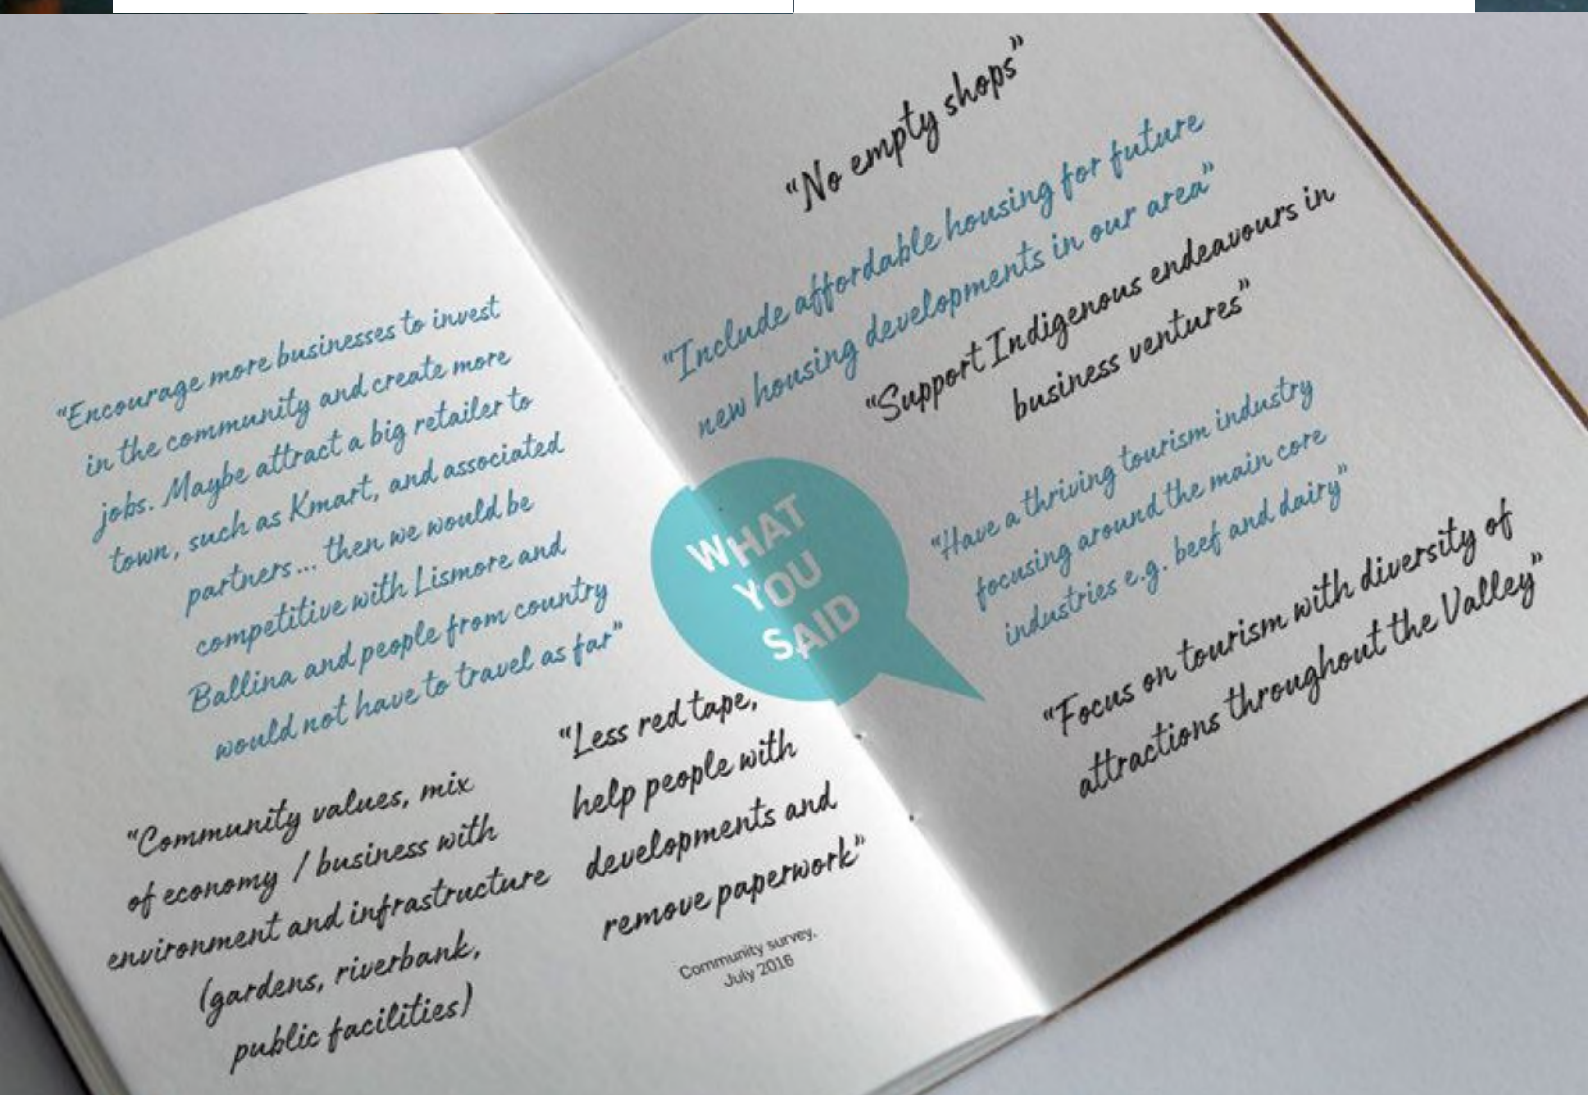 “Encourage more businesses to invest
in the community and create more
jobs. Maybe attract a big retailer to
town, such as Kmart, and associated
partners... then we would be
competitive with Lismore and
Ballina and people from country
would not have to travel as far”
“Community values, mix
of economy / business with
environment and infrastructure
(gardens, riverbank,
public facilities)
“Less red tape,
help people with
developments and
remove paperwork”
Community survey,
July 2016
WHAT
YOU
SAID
“No empty shops”
“Include affordable housing for future
new housing developments in our area”
“Support Indigenous endeavours in
business ventures”
“Have a thriving tourism industry
focusing around the main core
industries e.g. beef and dairy”
“Focus on tourism with diversity of
attractions throughout the Valley”